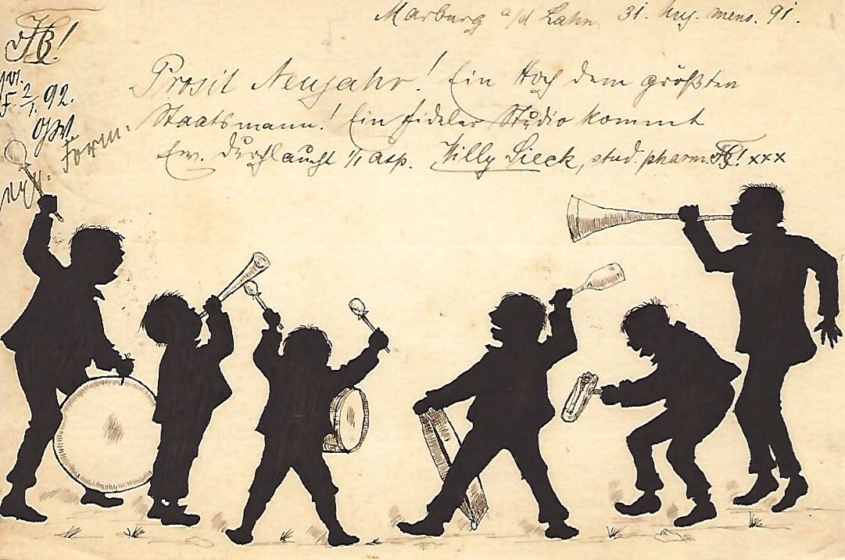 Marburg a/d Lahn, 31. huj. mens. 91.
Prosit Neujahr! Ein Hoch dem größten
Staatsmann! Ein fideler Studio kommt
Ew. Durchlaucht 1/1 asp. Willy Sieck, stud. pharm. xxx
92.
Form.